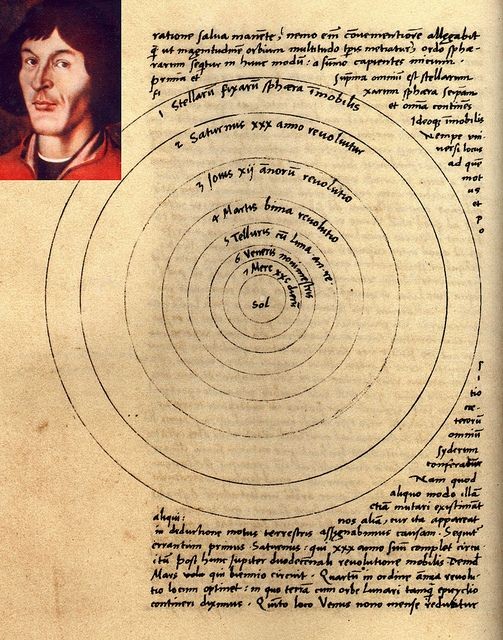 ratione salva manente, nemo em̄ convenientiorē allegabit
q̃ ut magnitudinē orbium multitudo tp̄is metiatur, ordo sphæ-
rarum sequitur in hunc modū: a summo capientes initium.
prima et suprema omniū est stellarum
fi xarum sphæra seipsam
et omnia continēs
Ideoq; īmobilis
Nempe uni-
versi locus
ad quē
mot
us
et
p
o
1 Stellarū fixarū sphæra īmobilis
2 Saturnus xxx anno revolvitur
3 Iovis xij annorū revolutio
4 Martis bima revolutio
5 Telluris cū Luna an. re.
6 Veneris nonimestris
7 Merc xxc dierū
Sol
s
i
tio
cæ-
terorū
omniū
syderum
conferatur
Nam quod
aliquo modo illā
etiā mutari existimāt
aliqui: nos aliā, cur ita appareat
in deductione motus terrestris assignabimus causam. Sequitur
errantium primus Saturnus: qui xxx anno suū complet circu
itū post hunc Iupiter duodecennali revolutione mobilis. Deinde
Mars qui biennio circuit. Quartū in ordine annua revolu-
tio locum optinet: in quo terrā cum orbe Lunari tanq̃ epicyclio
contineri diximus. Quinto loco Venus nono mense reducitur